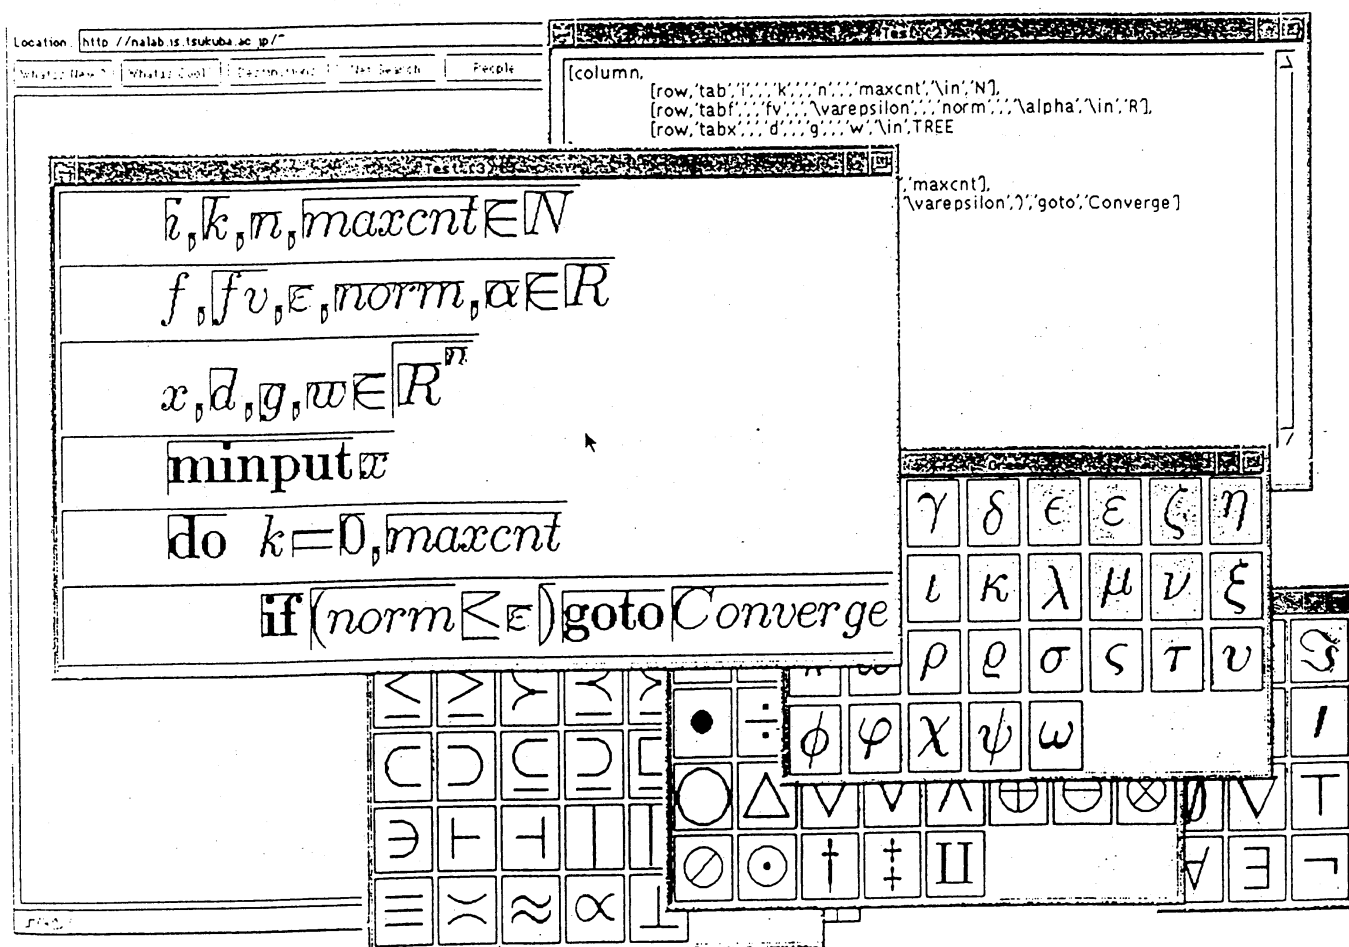 Location: http://nalab.is.tsukuba.ac.jp/~
What's New? What's Cool? Destinations Net Search People
Test (2)
[column,
[row,'tab','i',',','k',',','n',',','maxcnt','\in','N'],
[row,'tabf',',','fv',',','\varepsilon',',','norm',',','\alpha','\in','R'],
[row,'tabx',',','d',',','g',',','w','\in',TREE
,'maxcnt'],
'\varepsilon',')','goto','Converge']
Test (3)
i,k,n,maxcnt∈N
f,fv,ε,norm,α∈R
x,d,g,w∈Rⁿ
minput x
do k=0,maxcnt
if(norm≤ε)goto Converge
γ δ ϵ ε ζ η
ι κ λ μ ν ξ
ρ ϱ σ ς τ υ
ϕ φ χ ψ ω
≤ ≥ ≻ ⪯
⊂ ⊃ ⊆ ⊇
∋ ⊢ ⊣ |
≡ ≍ ≈ ∝
• ÷
◯ △ ▽ ∨ ∧ ⊕ ⊖ ⊗
⊘ ⊙ † ‡ ⨿
ℑ
′
∅ ▽ ⊤
∀ ∃ ¬